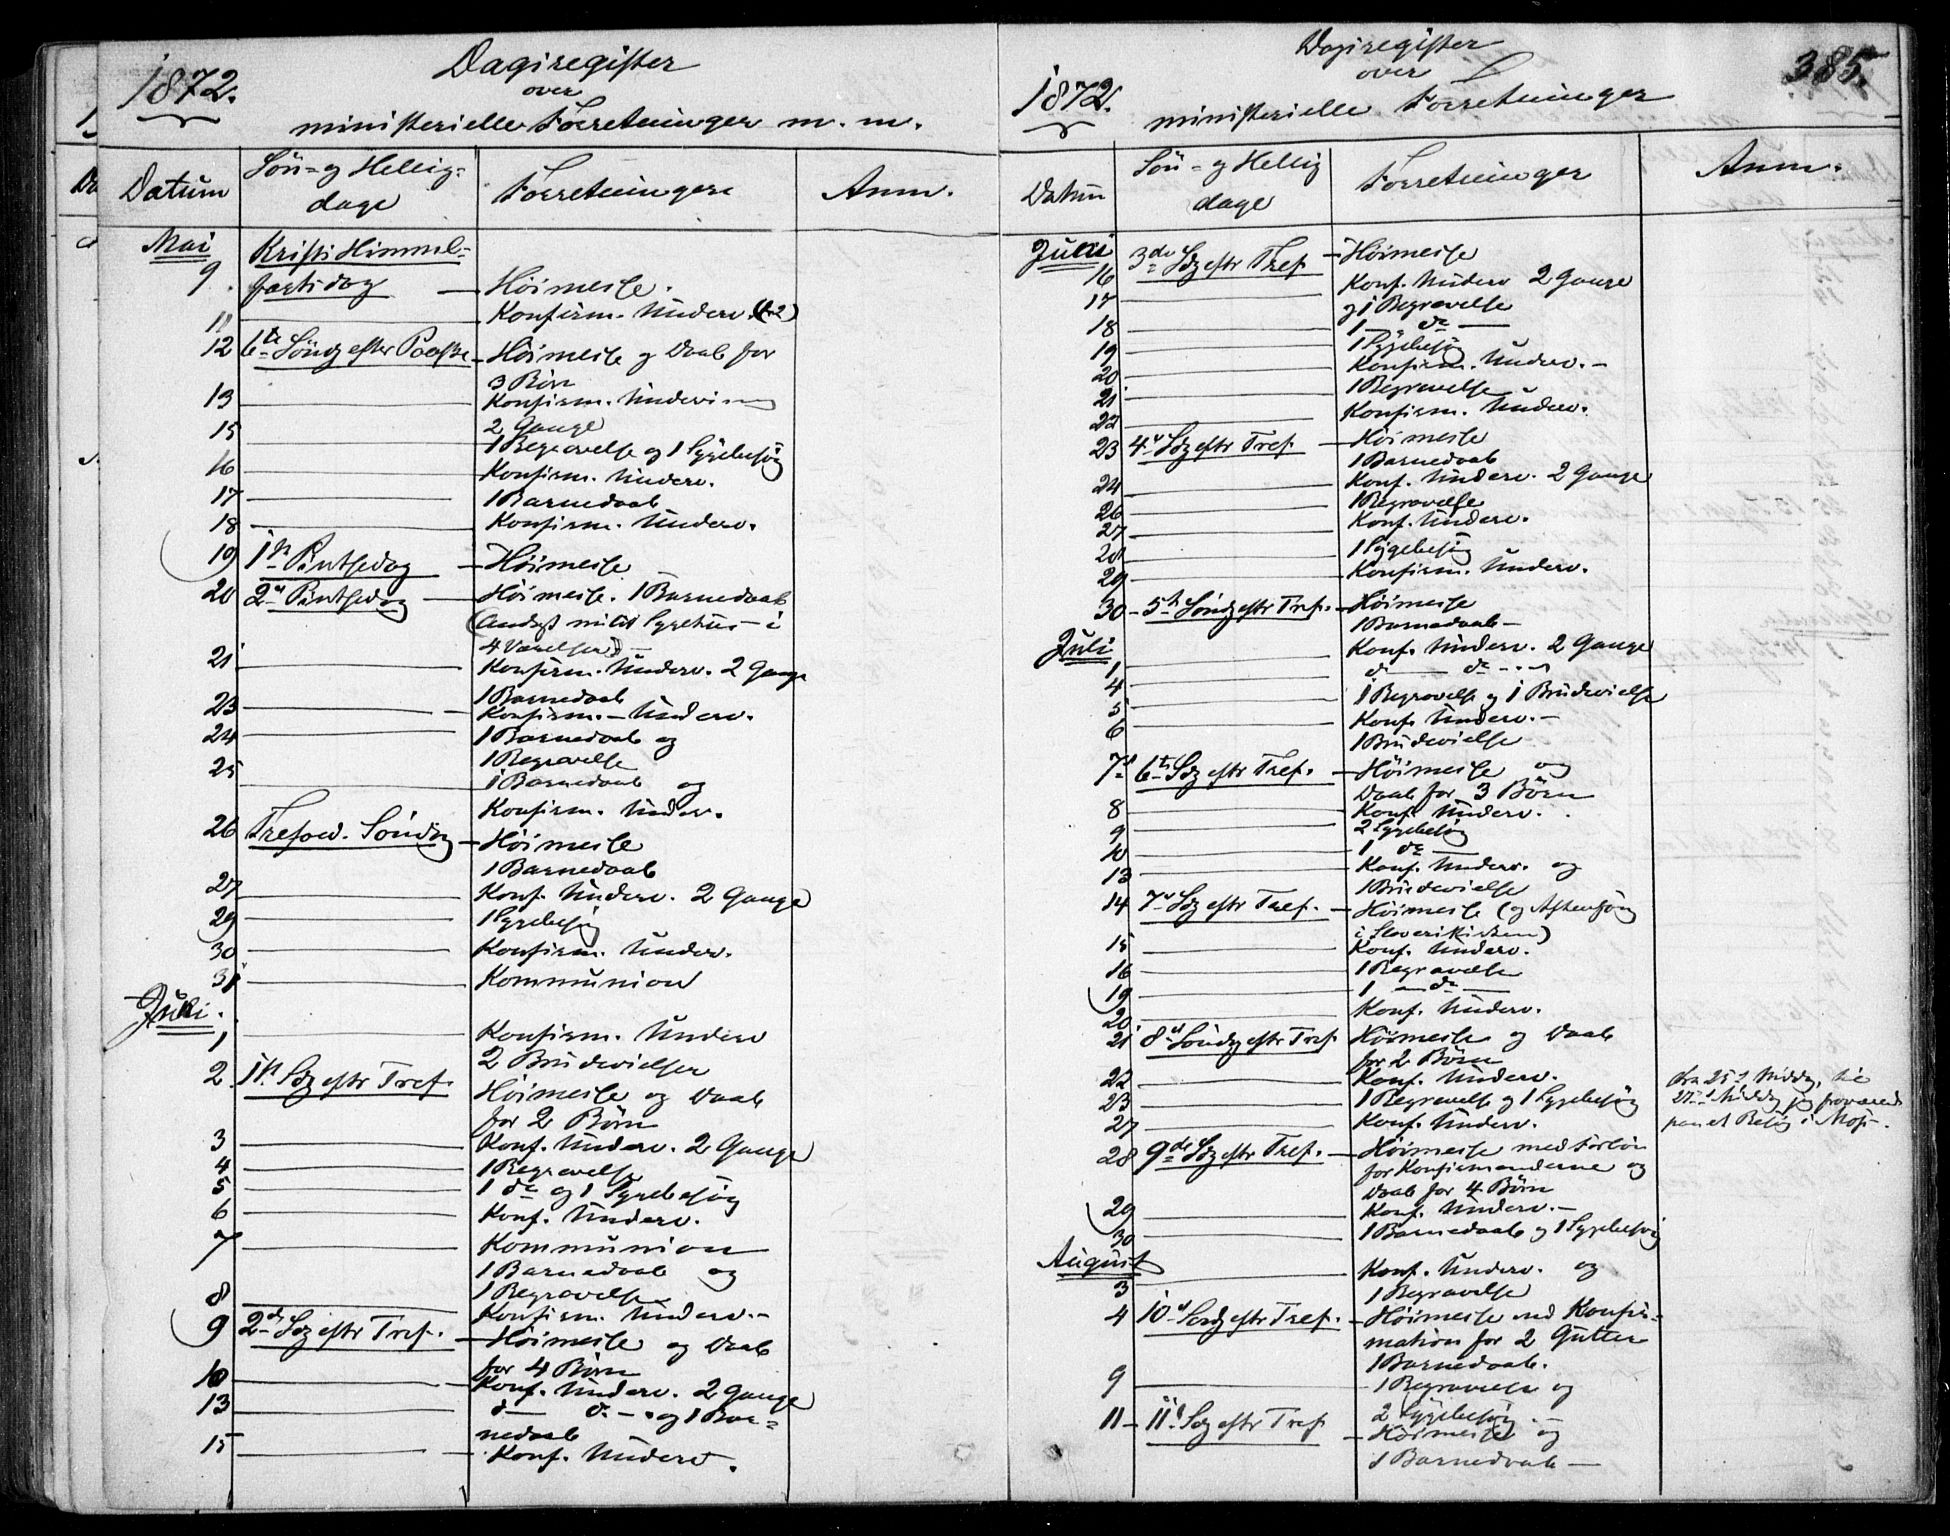 1872.
Dagsregister
over
ministerielle Forretninger m. m.
Datum
Søn- og Hellig-
dage
Forretninger
Anm.
Mai
Kristi Himmel-
9. fartsdag — Höimesse.
11 — Konfirm. Underv. (2)
12 6te Sönd efter Paaske — Höimesse og Daab for
3 Børn
13 — Konfirm. Underviisn
2 Gange
15 — 1 Begravelse og 1 Sygebesög
16 — Konfirm. Underv.
17 — 1 Barnedaab
18 — Konfirm. Underv.
19 1ste Pintsedag — Höimesse
20 2den Pintsedag — Höimesse. 1 Barnedaab
(Andagt milit Sygehus i
4 Værelser) —
21 — Konfirm. Underv. 2 Gange
1 Barnedaab
23 — Konfirm. — Underv.
24 — 1 Barnedaab og
1 Begravelse
25 — 1 Barnedaab og
Konfirm. Underv.
26 Trefold. Söndg — Höimesse
1 Barnedaab
27 — Konf. Underv. 2 Gange
29 — 1 Sygebesög
30 — Konfirm. Underv.
31 — Kommunion
Juni.
1 — Konfirm. Underv
2 Brudevielser
2 1ste Sdg eftr Tref. Höimesse og Daab
for 2 Börn
3 — Konf. Underv. 2 Gange
4 — 1 Begravelse
5 — 1 do og 1 Sygebesög
6 — Konf. Underv.
7 — Kommunion
1 Barnedaab og
1 Begravelse
8 — Konfirm. Underv. —
9 2den Sdg eftr Tref. — Höimesse og Daab
for 4 Börn
10 — Konf. Underv. 2 Gange
13 — do — do — og 1 Bar=
nedaab
15 — Konf. Underv.
1872.
Dagsregister
over
ministerielle Forretninger
385.
Datum
Sön- og Hellig
dage
Forretninger
Anm.
Juni 3die Sdg eftr Tref — Höimesse
16 Konf. Underv 2 Gange
17 — og 1 Begravelse
18 — 1 — do —
19 — 1 Sygebesög
20 — Konfirm. Underv. —
21 — 1 Begravelse
22 — Konfirm. Underv.
23 4de Sdg eftr Tref — Höimesse
1 Barnedaab
24 — Konf. Underv. 2 Gange
26 — 1 Begravelse
27 — Konf. Underv.
28 — 1 Sygebesög
29 — Konfirm. Underv.
30 — 5te Söndg eftr Tref. — Höimesse
1 Barnedaab —
Juli
1 — Konf. Underv. 2 Gange
4 — do — do — —
5 — 1 Begravelse og 1 Brudevielse
6 — Konf. Underv. —
1 Brudevielse
7 6te Sdg eftr Tref. — Höimesse og
Daab for 3 Börn
8 — Konf. Underv.
9 — 2 Sygebesög
10 — 1 do —
13 — Konf. Underv. og
1 Brudevielse
14 7de Sdg eftr Tref. — Höimesse (og Aftensang
i Slevenkirken)
15 — Konf. Underv.
16 — 1 Begravelse
19 — 1 — do —
20 — Konf. Underv.
21 8de Söndg eftr Tref. Höimesse og Daab
for 2 Börn
22 — Konf. Underv.
23 — 1 Begravelse og 1 Sygebesög
27 — Konf. Underv.
Den 25de Middg, til
27de Middg jeg fraværende
paa et Besög i Moss.
28 9de Sdg eftr Tref. — Höimesse med Forbön
for Konfirmanderne og
Daab for 4 Börn
29 — Konf. Underv. —
30 — 1 Barnedaab og 1 Sygebesög
August
3 — Konf. Underv. og
1 Begravelse
4 10de Söndg eftr Tref. — Höimesse med Konfir=
mation for 2 Gutter
1 Barnedaab.
9 — 1 Begravelse og
2 Sygebesög. —
11 — 11te Sdg eftr Tref — Höimesse og
1 Barnedaab —